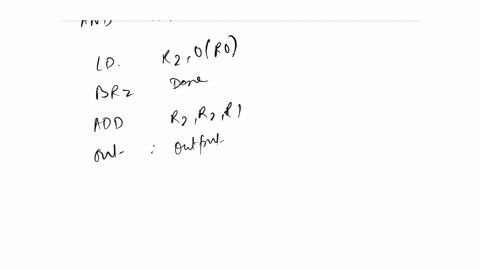 AND
LD. R2, 0(R0)
BRz Done
ADD R2, R2, R1
out : output